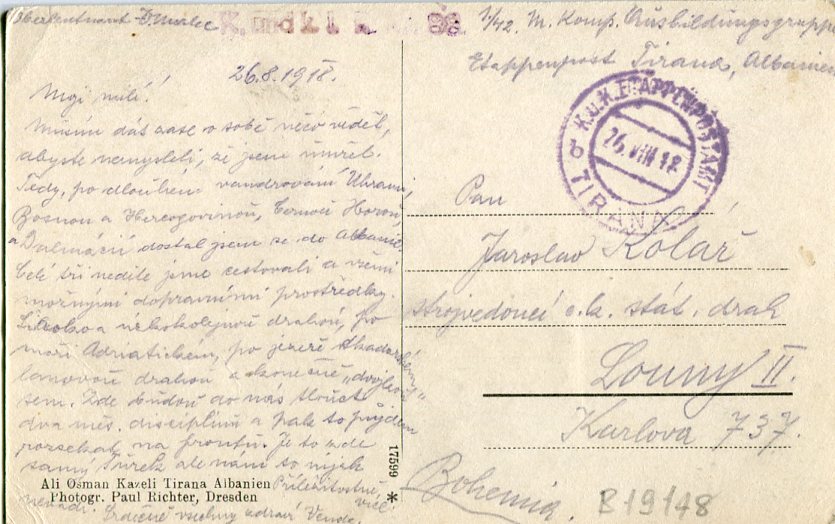 Oberleutnant
K. und k. I. R. Nr. 98.
1/42. M. Komp. Ausbildungsgruppe
Etappenpost Tirana, Albanien
K.U.K. ETAPPENPOSTAMT
26. VIII 18
TIRANA
26.8.1918.
Moji milí!
Musím dát zase o sobě něco vědět,
abyste nemysleli, že jsem umřel.
Tedy, po dlouhém vandrování Uhrami,
Bosnou a Hercogovinou, Černou Horou,
a Dalmácií dostal jsem se do Albanie.
Celé tři neděle jsme cestovali a všemi
možnými dopravními prostředky.
úzkokolejnou drahou, po
moři Adriatickém, po jezeře Skadarském,
lanovou drahou a konečně
sem. Zde budou do nás tlouct
dva měs. disciplinu a pak to půjdem
rozsekat na frontu. Je to zde
samý Turek ale nám to nijak
nevadí. Příležitostně více
Srdečně všechny zdraví Venda.
Pan
Jaroslav Kolář
strojvedoucí c.k. stát. drah
Louny II.
Karlova 737.
Bohemia.
B19148
17599 *
Ali Osman Kazeli Tirana Albanien
Photogr. Paul Richter, Dresden